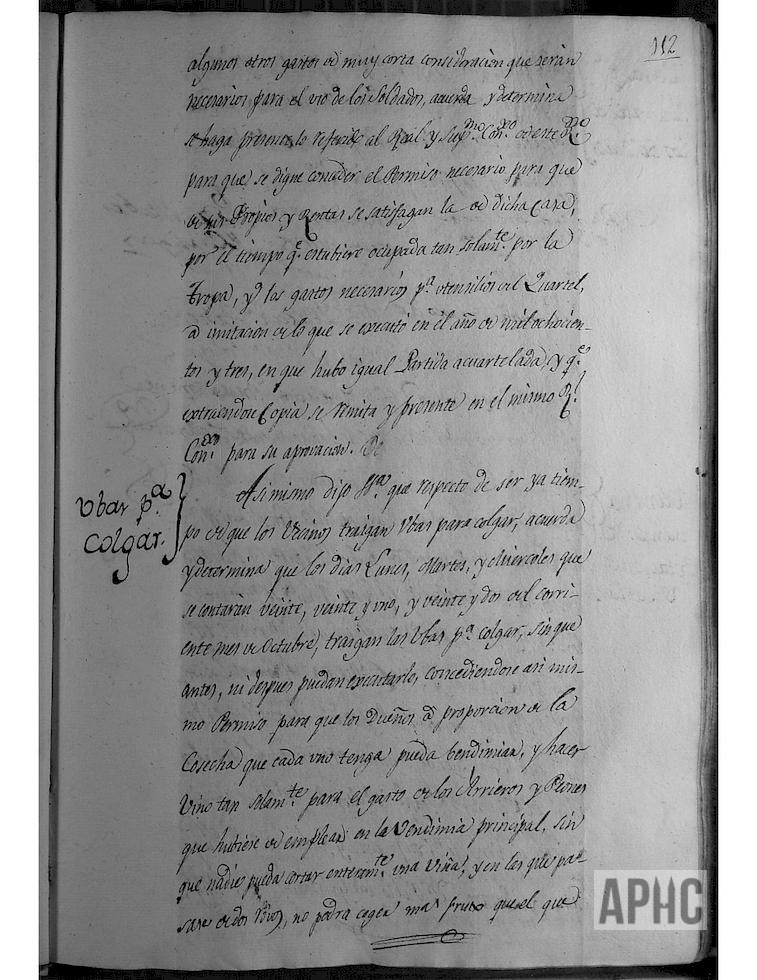 112
algunos otros gastos de muy corta consideracion que serán
necesarios para el vso de los Soldados, acuerda y determina
se haga presente lo referido al Real y Sup.mo Con.xo de este R.no
para que se digne conceder el Permiso necesario para que
de sus Propios y Rentas se satisfagan la de dicha Casa,
por el tiempo q.e estubiere ocupada tan solam.te por la
tropa, y los gastos necesarios p.a vtensilios del Quartel,
a imitacion de lo que se executó en el año de mil ochocien-
tos y tres, en que hubo igual Partida acuartelada, y q.e
extraendose Copia se remita y presente en el mismo R.l
Con.xo para su aprovacion.
Vbas p.a
colgar.
Asimismo dijo que respecto de ser ya tiem-
po de que los Vecinos traigan Vbas para colgar, acuerda
y determina que los dias Lunes, Martes, y Miercoles que
se contarán veinte, veinte y vno, y veinte y dos del corri-
ente mes de Octubre, traigan las Vbas p.a colgar, sin que
antes, ni despues puedan executarlo, concediendose asi mis-
mo Permiso para que los Dueños a proporcion de la
Cosecha que cada vno tenga pueda bendimiar, y hacer
Vino tan solam.te para el gasto de los Arrieros y Peones
que hubiere de emplear en la Vendimia principal, sin
que nadie pueda cortar enteram.te vna Viña, y en las que pa-
sare de dos no podra coger mas fruto que el que
APHC